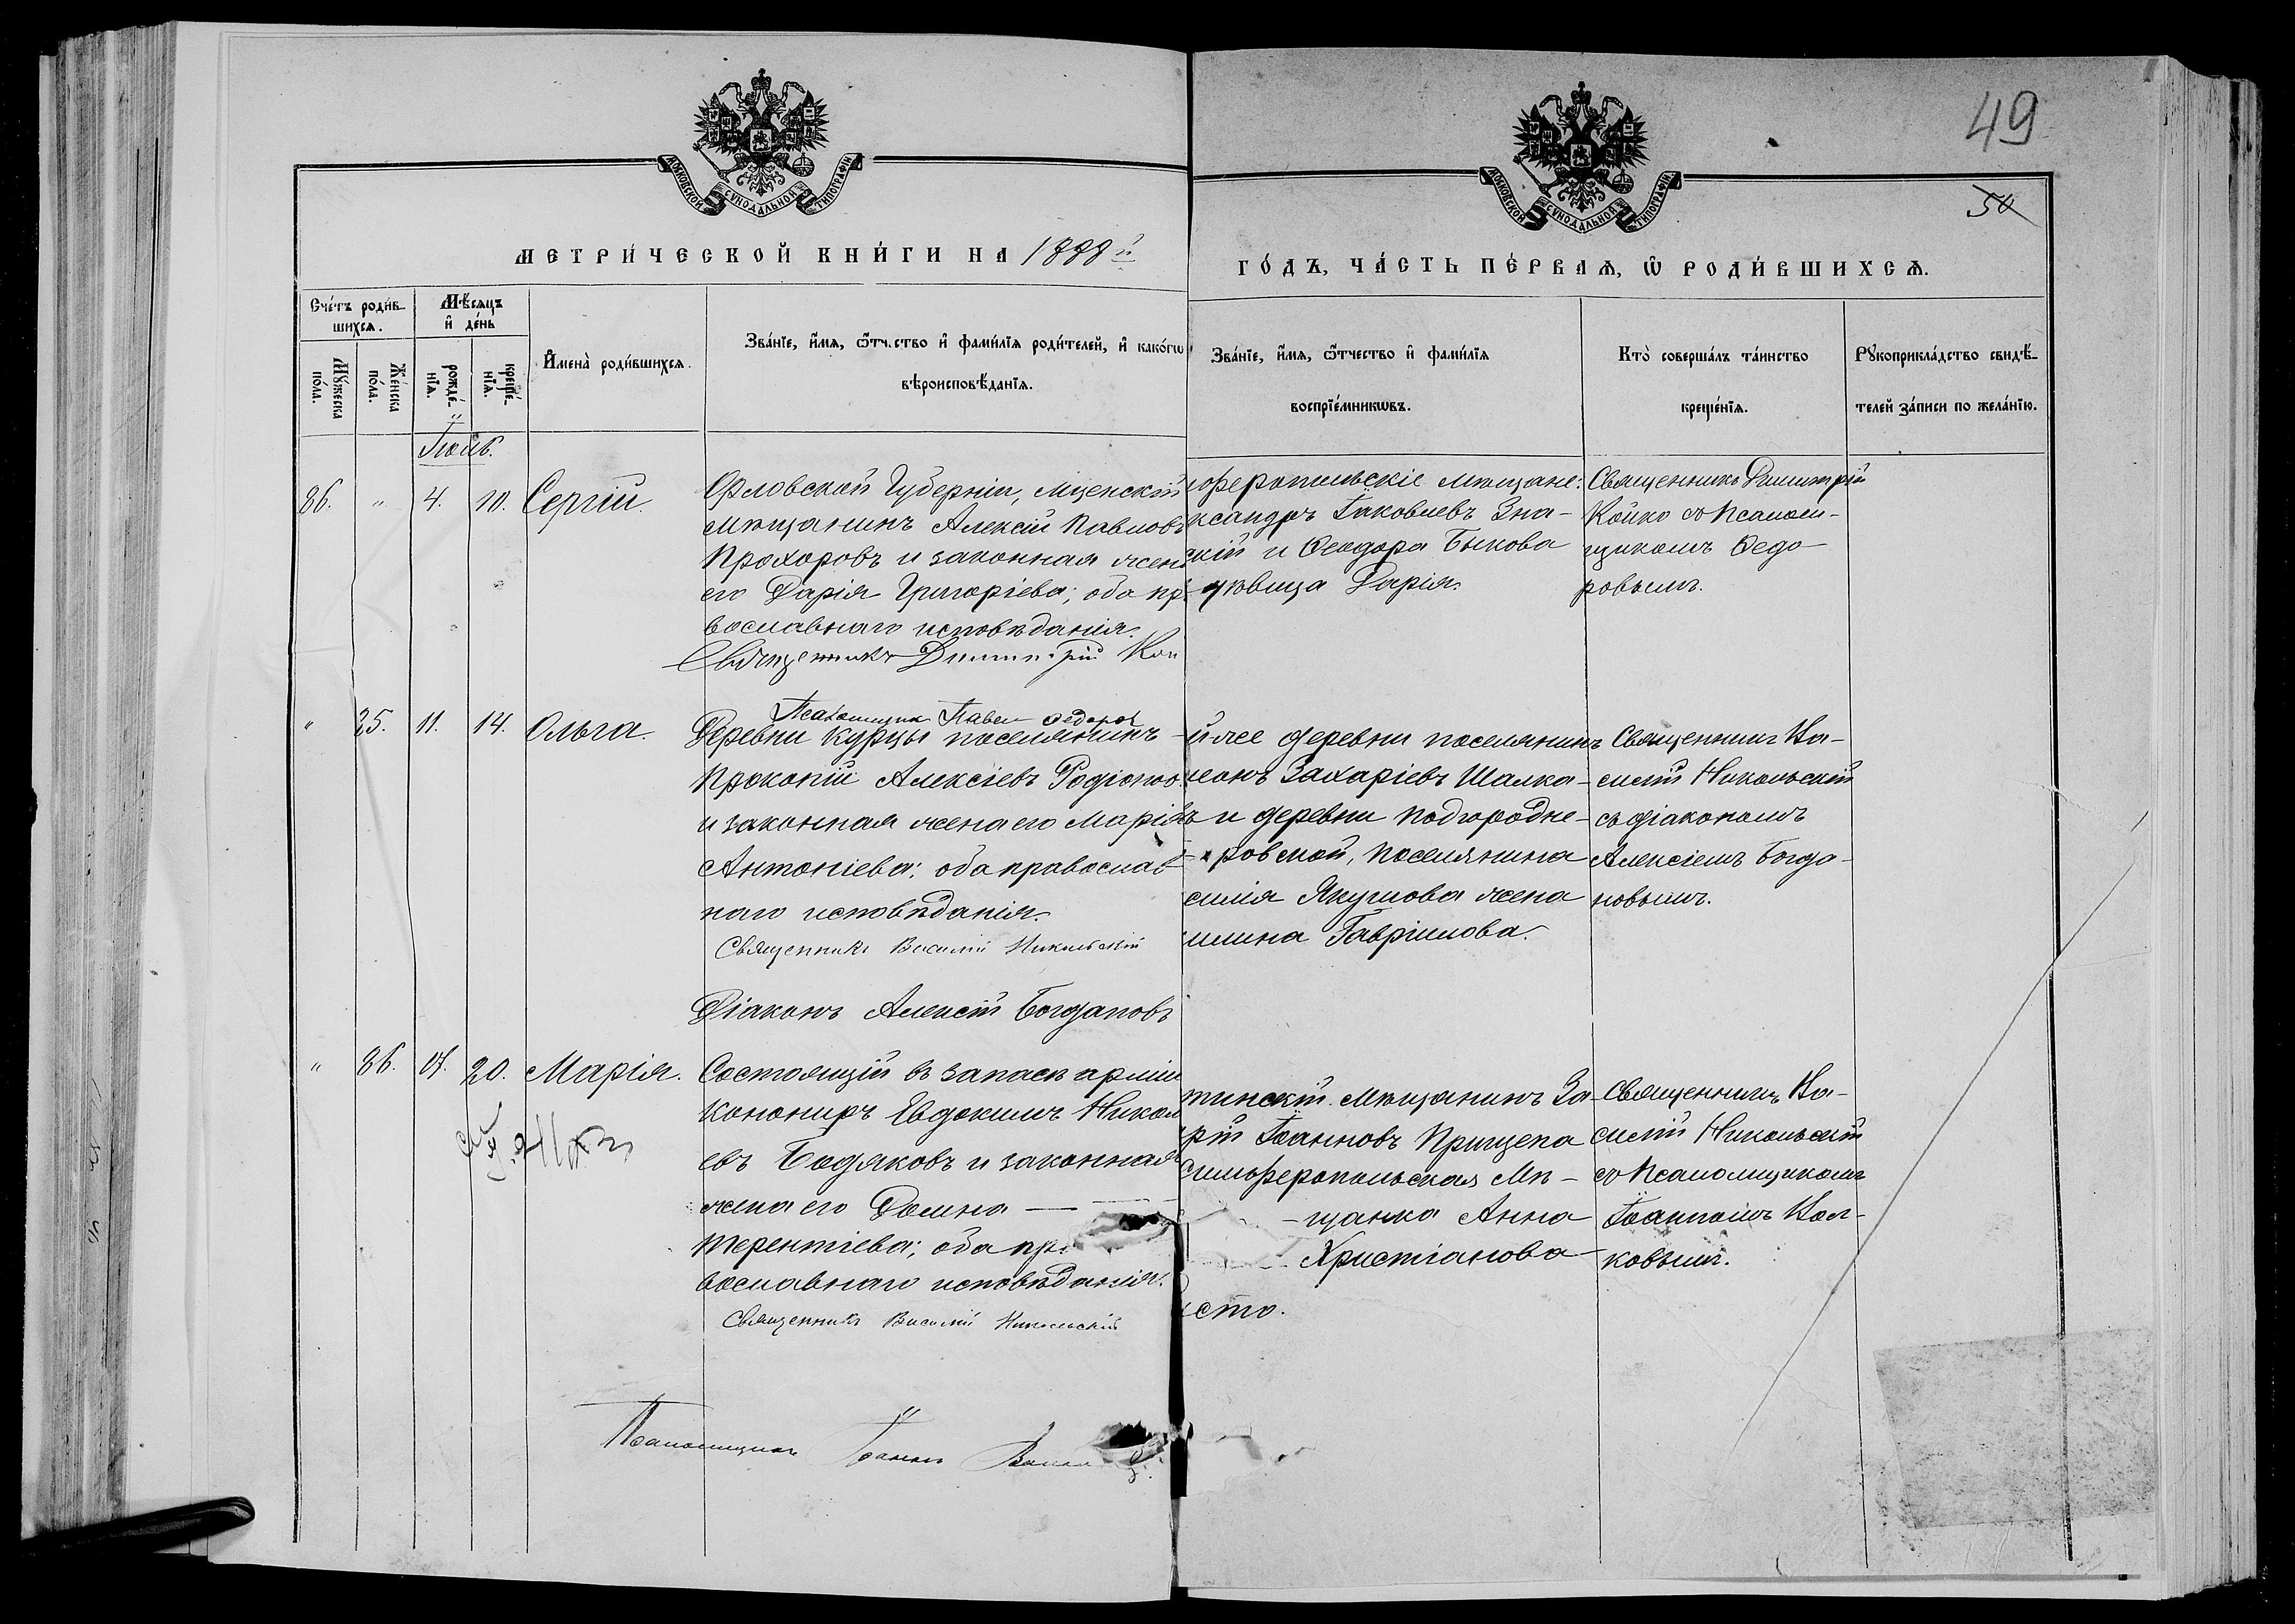 49
50
МОСКОВСКОЙ СѴНОДАЛЬНОЙ ТИПОГРАФІИ
МОСКОВСКОЙ СѴНОДАЛЬНОЙ ТИПОГРАФІИ
МЕТРИ́ЧЕСКОЙ КНИ́ГИ НА 1888й
ГО́ДЪ, ЧА́СТЬ ПЕ́РВАѦ, Ѡ҆ РОДИ́ВШИХСѦ.
Сче́тъ роди́в-
шихсѧ.
Мѣ́сѧцъ
и҆ де́нь
Мꙋ́жеска
по́ла.
Же́нска
по́ла.
рожде́-
нїѧ.
креще́-
нїѧ.
И҆мена̀ роди́вшихсѧ.
Зва́нїе, и҆́мѧ, ѻ҆́тч.ство и҆ фами́лїѧ роди́телей, и҆ како́гѡ
вѣроисповѣ́данїѧ.
Зва́нїе, и҆́мѧ, ѻ҆́тчество и҆ фами́лїѧ
воспрїе́мникѡвъ.
Кто̀ соверша́лъ та́инство
креще́нїѧ.
Рꙋкоприкла́дство свидѣ́-
телей за́писи по жела́нїю.
Іюль.
86. " 4. 10. Сергій.
Орловской Губерніи, Мценскій
мѣщанинъ Алексій Павловъ
Прохоровъ и законная жен
его Дарія Григоріева; оба пр
вославнаго исповѣданія.
Священникъ Димитрій Кой
Псаломщик Павел Федоров
оферопольскіе мѣщане:
ксандръ Іаковлевъ Зна-
скій и Ѳеодора Быкова
дѣвица Дарія.
Священникъ Димитрій
Койко съ Псалом-
щикомъ Ѳедо-
ровымъ.
" 25. 11. 14. Ольга.
Деревни Курцы поселянинъ
Прокопій Алексіевъ Родіоно
и законная жена его Марія
Антоніева; оба православ-
наго исповѣданія.
Священникъ Василій Никольскій
Діаконъ Алексій Богдановъ
й же деревни поселянинъ
меонъ Захаріевъ Шалка-
ъ и деревни Подгородне-
ровской, поселянина
силія Якушова жена
Гавріилова.
Священникъ Ва-
силій Никольскій
съ діакономъ
Алексіемъ Богда-
новымъ.
" 86. 17. 20. Марія.
Состоящій въ запасѣ арміи
Конониръ Евдокимъ Никол
евъ Бодяковъ и законная
жена его Домна —
Терентіева; оба пр
вославнаго исповѣданія.
Священникъ Василій Никольскій
Псаломщикъ Іоаннъ
тинскій мѣщанинъ За-
рій Іоанновъ Прищепа
Симферопольская Мѣ-
щанка Анна
Христіанова
сто.
Священникъ Ва-
силій Никольскій
съ Псаломщикомъ
Іоанномъ Вол-
ковымъ.